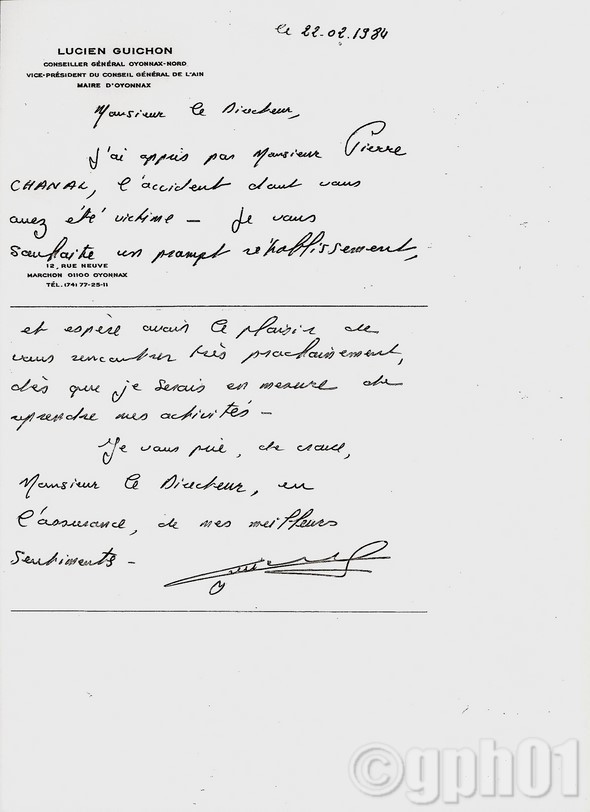 le 22.02.1984
LUCIEN GUICHON
CONSEILLER GÉNÉRAL OYONNAX-NORD
VICE-PRÉSIDENT DU CONSEIL GÉNÉRAL DE L'AIN
MAIRE D'OYONNAX
Monsieur le Directeur,
J'ai appris par Monsieur Pierre
CHANAL, l'accident dont vous
avez été victime - Je vous
souhaite un prompt rétablissement,
12, RUE NEUVE
MARCHON 01100 OYONNAX
TÉL. (74) 77-25-11
et espère avoir le plaisir de
vous rencontrer très prochainement,
dès que je serais en mesure de
reprendre mes activités -
Je vous prie, de croire,
Monsieur le Directeur, en
l'assurance, de mes meilleurs
sentiments -
©gph01